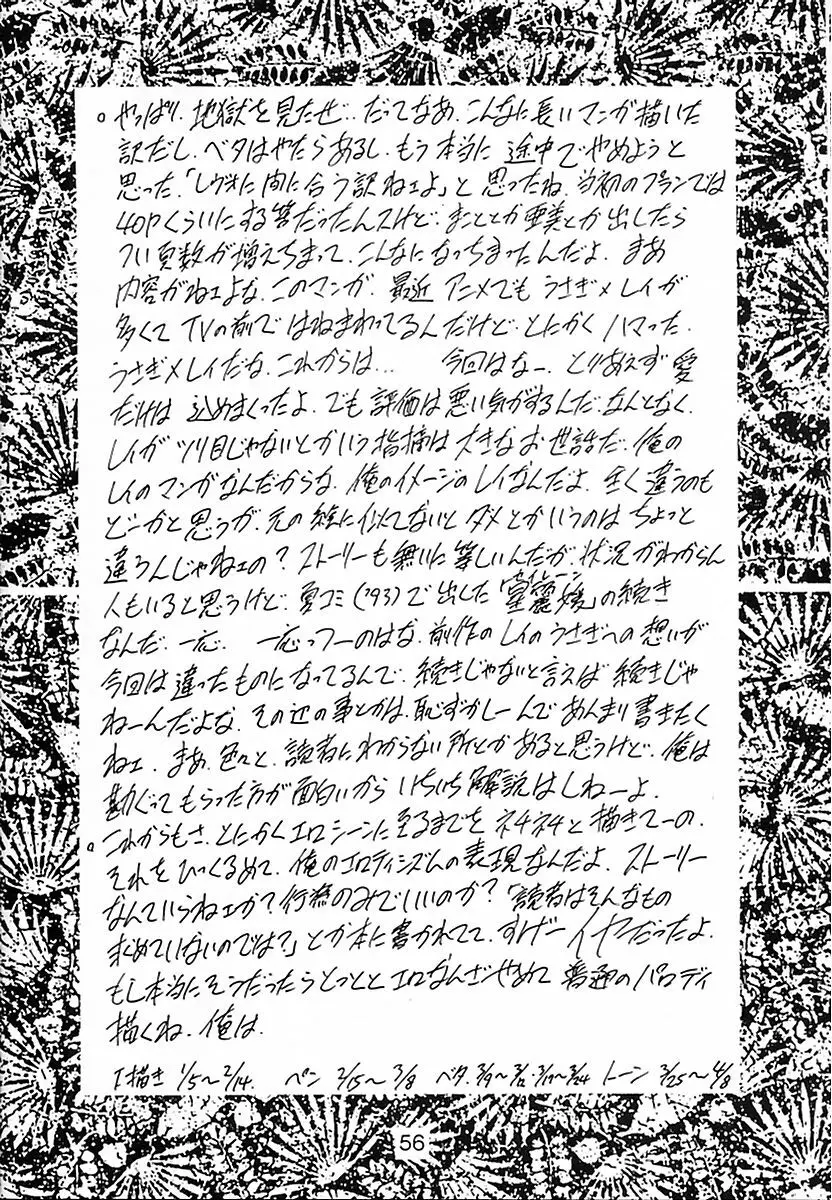 ○やっぱり、地獄を見たぜ…だってなあ、こんなに長いマンガ描いた
訳だし、ベタはやたらあるし、もう本当に途中でやめようと
思った。「レヴォに間に合う訳ねェよ」と思ったね。当初のプランでは
40Pくらいにする筈だったんスけど、まこととか亜美とか出したら
つい頁数が増えちまって、こんなになっちまったんだよ。まあ
内容がねェよな、このマンガ。最近アニメでもうさぎ×レイが
多くてTVの前ではねまわってるんだけど、とにかくハマった。
うさぎ×レイだな、これからは… 今回はなー、とりあえず愛
だけは込めまくったよ。でも評価は悪い気がするんだ、なんとなく。
レイがツリ目じゃないとかいう指摘は大きなお世話だ。俺の
レイのマンガなんだからな。俺のイメージのレイなんだよ。全く違うのも
どーかと思うが、元の絵に似てないとダメとかいうのはちょっと
違うんじゃねェの?ストーリーも無いに等しいんだが、状況がわからん
人もいると思うけど、夏コミ('93)で出した「麗媛」の続き
なんだ、一応。一応っつーのはな、前作のレイのうさぎへの想いが
今回は違ったものになってるんで、続きじゃないと言えば続きじゃ
ねーんだよな。その辺の事とかは、恥ずかしーんであんまり書きたく
ねェ。まあ、色々と、読者にわからない所とかあると思うけど、俺は
勘ぐってもらった方が面白いからいちいち解説はしねーよ。
○これからもさ、とにかくエロシーンに至るまでをネチネチと描きてーの。
それをひっくるめて、俺のエロティシズムの表現なんだよ。ストーリー
なんていらねェか?行為のみでいいのか?「読者はそんなもの
求めていないのでは?」とか本に書かれてて、すげーイヤだったよ。
もし本当にそうだったらとっととエロなんざやめて普通のパロディ
描くね、俺は。
下描き 1/5〜2/14. ペン 2/15〜3/8 ベタ、3/9〜3/12・3/17〜3/24 トーン 3/25〜4/8
56